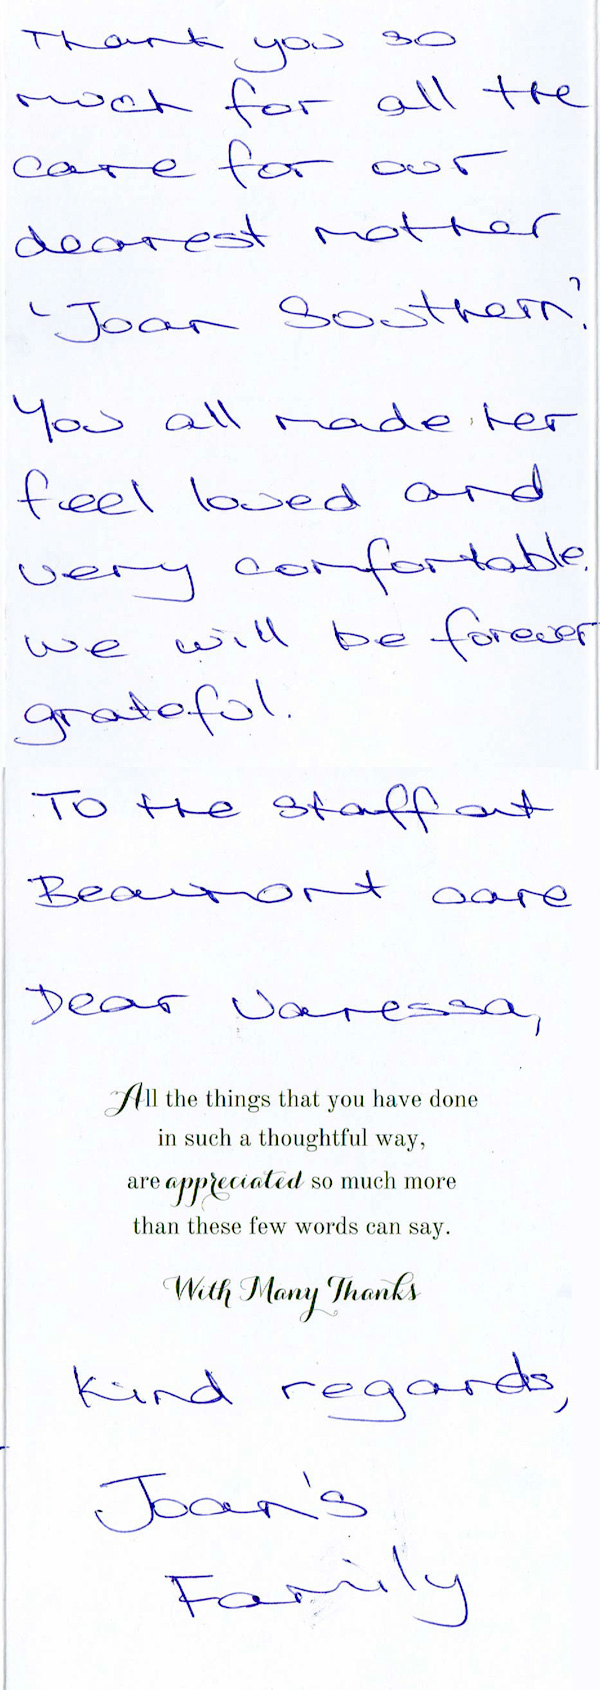 Thank you so
much for all the
care for our
dearest mother
'Joan Southern'.
You all made her
feel loved and
very comfortable.
we will be forever
grateful.
To the staff at
Beaumont care
Dear Vanessa,
All the things that you have done
in such a thoughtful way,
are appreciated so much more
than these few words can say.
With Many Thanks
Kind regards,
Joan's
Family